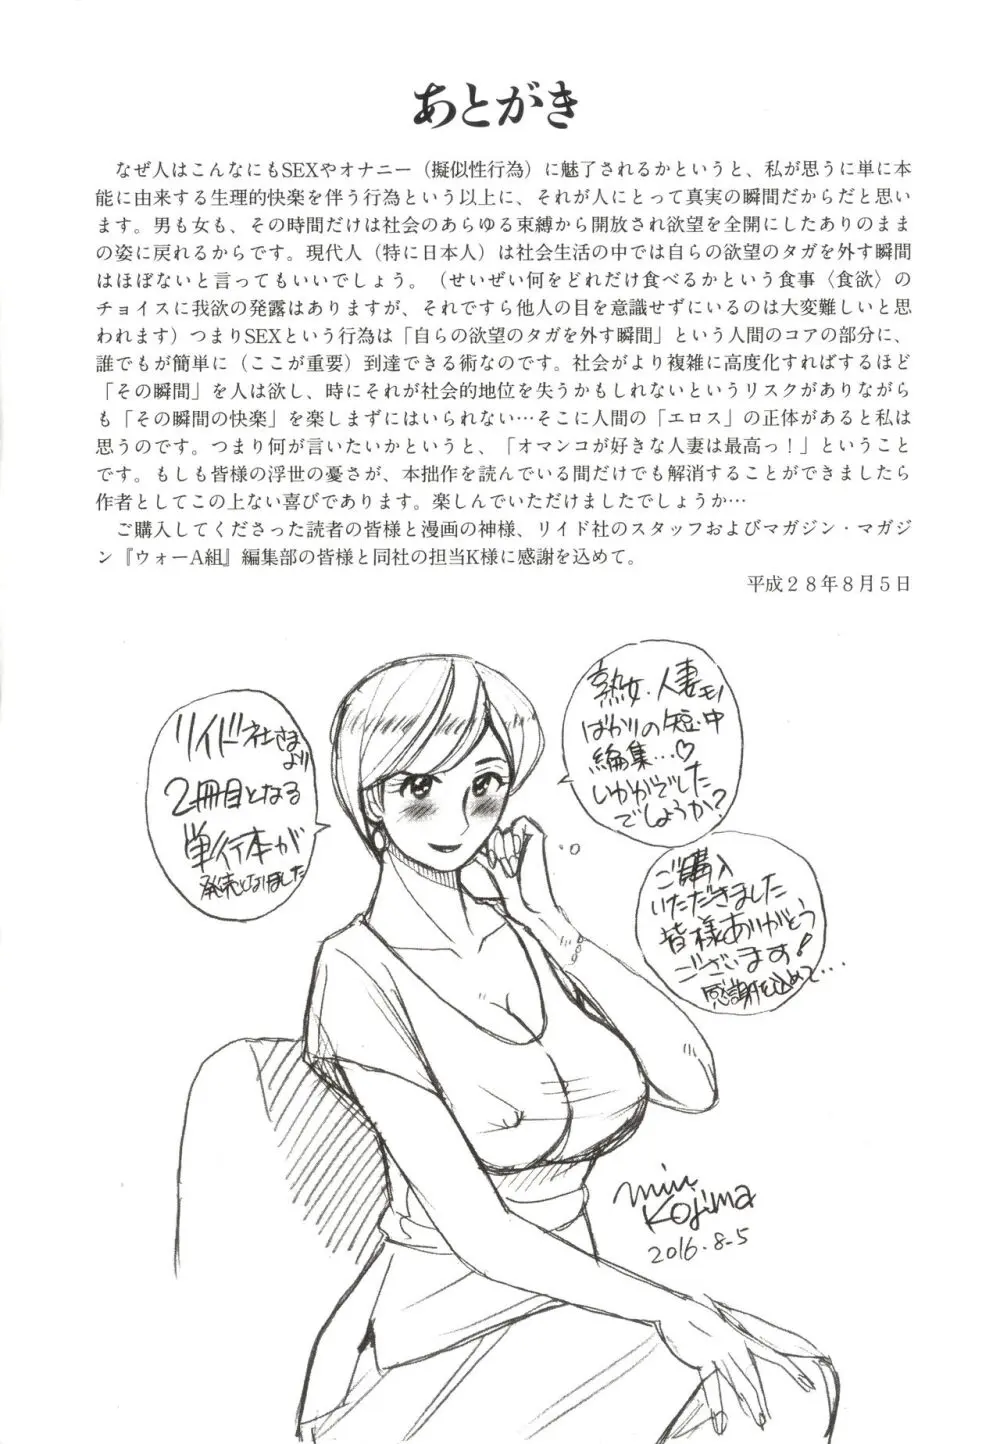 あとがき
なぜ人はこんなにもSEXやオナニー（擬似性行為）に魅了されるかというと、私が思うに単に本
能に由来する生理的快楽を伴う行為という以上に、それが人にとって真実の瞬間だからだと思い
ます。男も女も、その時間だけは社会のあらゆる束縛から開放され欲望を全開にしたありのまま
の姿に戻れるからです。現代人（特に日本人）は社会生活の中では自らの欲望のタガを外す瞬間
はほぼないと言ってもいいでしょう。（せいぜい何をどれだけ食べるかという食事〈食欲〉の
チョイスに我欲の発露はありますが、それですら他人の目を意識せずにいるのは大変難しいと思
われます）つまりSEXという行為は「自らの欲望のタガを外す瞬間」という人間のコアの部分に、
誰でもが簡単に（ここが重要）到達できる術なのです。社会がより複雑に高度化すればするほど
「その瞬間」を人は欲し、時にそれが社会的地位を失うかもしれないというリスクがありながら
も「その瞬間の快楽」を楽しまずにはいられない…そこに人間の「エロス」の正体があると私は
思うのです。つまり何が言いたいかというと、「オマンコが好きな人妻は最高っ！」ということ
です。もしも皆様の浮世の憂さが、本拙作を読んでいる間だけでも解消することができましたら
作者としてこの上ない喜びであります。楽しんでいただけましたでしょうか…
ご購入してくださった読者の皆様と漫画の神様、リイド社のスタッフおよびマガジン・マガジ
ン『ウォーA組』編集部の皆様と同社の担当K様に感謝を込めて。
平成２８年８月５日
熟女・人妻モノ
ばかりの短・中
編集…♡
いかがでした
でしょうか？
リイド社さま
より
2冊目となる
単行本が
発売となりました
ご購入
いただきました
皆様ありがとう
ございます！
感謝を込めて…
miu
Kojima
2016.8.5